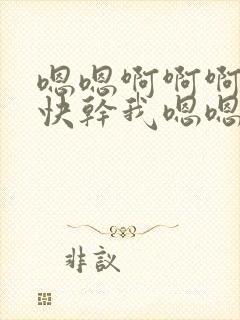 嗯嗯啊啊啊
快幹我嗯嗯
非議